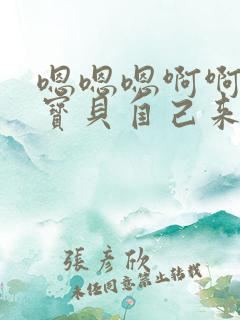 嗯嗯嗯啊啊
寳貝自己来
張彦欣
未任同意禁止转载